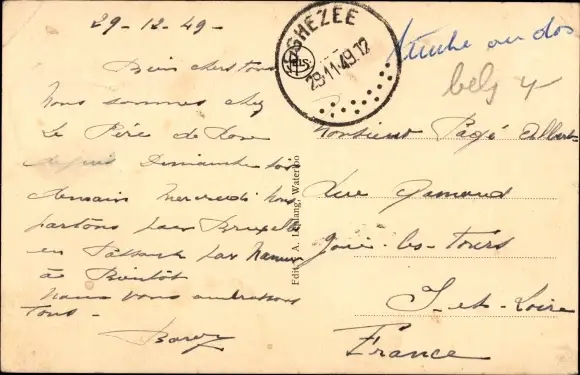 29-12-49-
Bien chers tous
Nous sommes chez
Le Père de Rose
depuis Dimanche soir
demain Mercredi nous
partons pour Bruxelles
en passant par Namur
à Bientôt
nous vous embrassons
tous -
GHEZEE
29.11.49.12
au dos
belg 4
Monsieur Pagé Albert
Rue Gamard
Joué-les-Tours
I-et-Loire
France
Edit. A. Waterloo